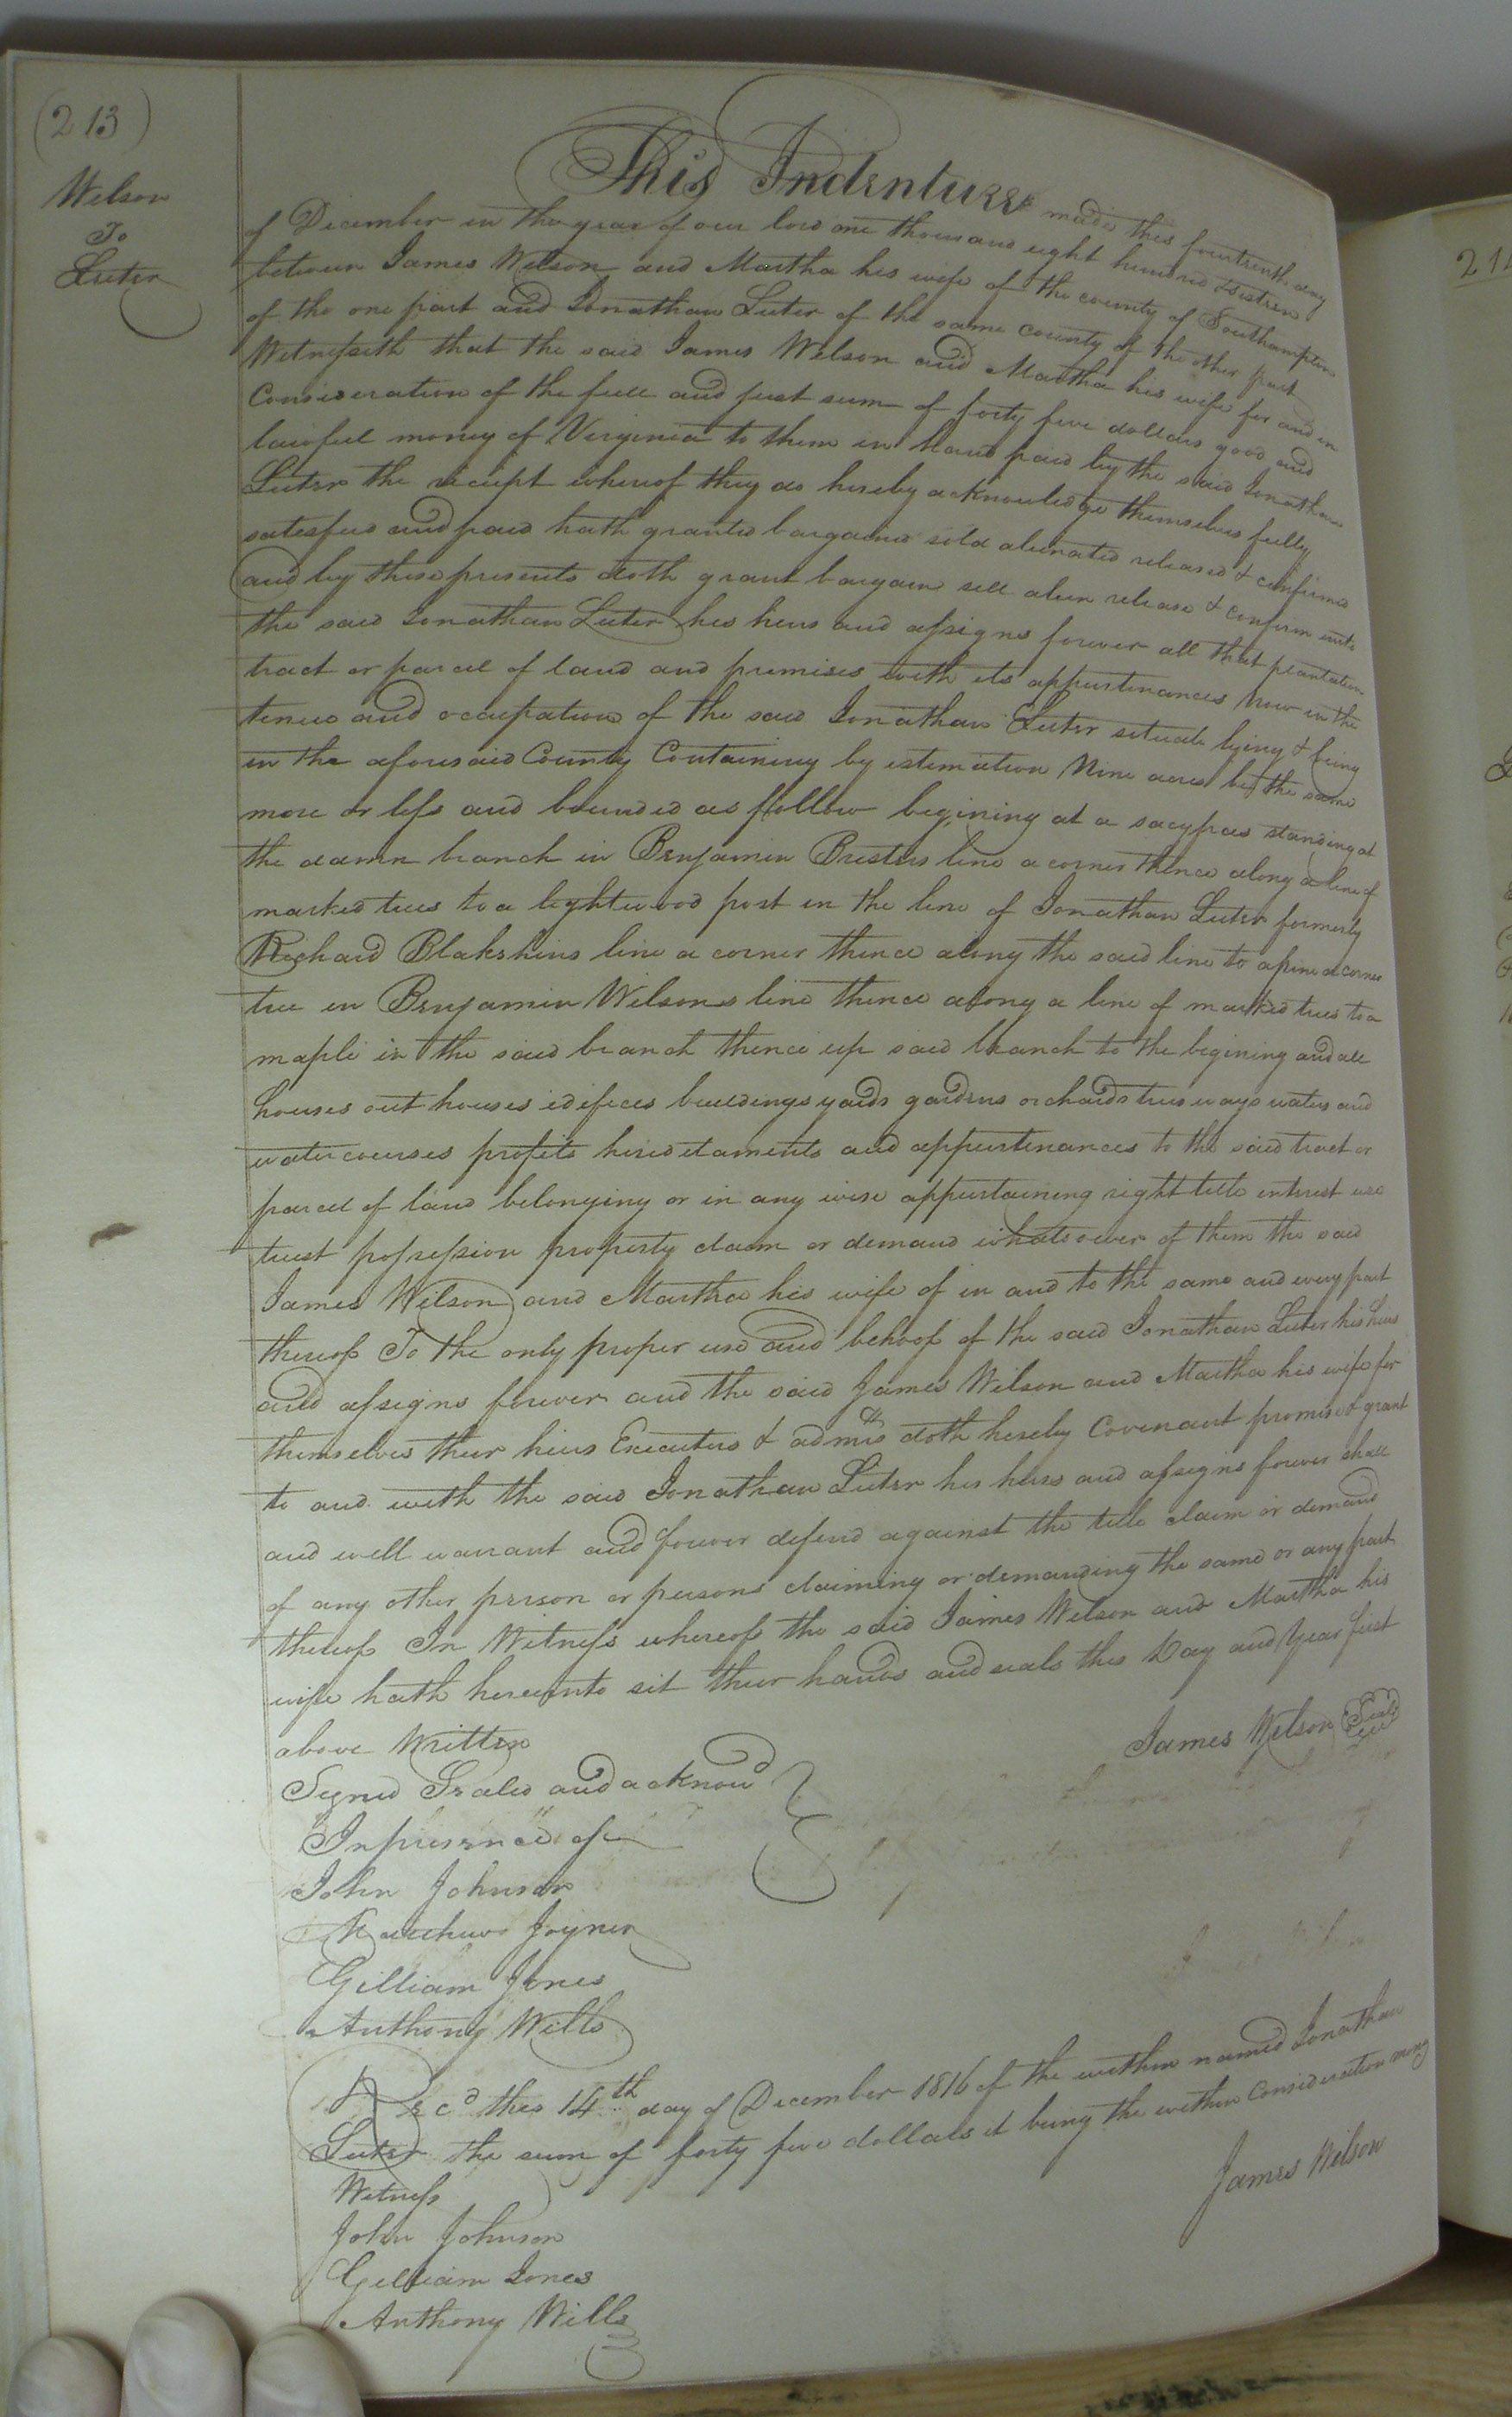 (213)
Wilson
To
Luter
This Indenture made this fourteenth day
of December in the year of our lord one thousand eight hundred & sixteen
between James Wilson and Martha his wife of the county of Southampton
of the one part and Jonathan Luter of the same county of the other part
Witnesseth that the said James Wilson and Martha his wife for and in
Consideration of the full and just sum of forty five dollars good and
lawful money of Virginia to them in hand paid by the said Jonathan
Luter the receipt whereof they do hereby acknowledge themselves fully
satesfied and paid hath granted bargained sold alienated released & confirmed
and by these presents doth grant bargain sell alien release & confirm unto
the said Jonathan Luter his heirs and assigns forever all that plantation
tract or parcel of land and premises with its appurtinances Now in the
tenue and occupation of the said Jonathan Luter situate lying & being
in the aforesaid County Containing by estimation Nine acres be the same
more or less and bounded as follow begining at a sacypras standing at
the damn branch in Benjamin Bristers line a corner thence along a line of
marked trees to a lightwood post in the line of Jonathan Luter formerly
Richard Blakskins line a corner thence along the said line to a pine a corner
tree in Benjamin Wilsons line thence along a line of marked trees to a
maple in the said branch thence up said branch to the begining and all
houses out houses edifeces buildings yards gardens orchards trees ways waters and
watercourses profits heredetaments and appurtenances to the said tract or
parcel of land belonging or in any wise appurtaining right title interest use
trust possession property claim or demand whatsoever of them the said
James Wilson and Martha his wife of in and to the same and every part
thereof To the only proper use and behoof of the said Jonathan Luter his heirs
and assigns forever and the said James Wilson and Martha his wife for
themselves their heirs Executors & admrs doth hereby Covenant promise & grant
to and with the said Jonathan Luter his heirs and assigns forever shall
and will warrant and forever defend against the title claim or demand
of any other person or persons claiming or demanding the same or any part
thereof In Witness whereof the said James Wilson and Martha his
wife hath hereunto sit their hands and seals this Day and Year first
above Written
James Wilson Seal
Signed Sealed and acknowd
In presence of
John Johnson
Matthew Joyner
Gilliam Jones
Anthony Wills
Recd this 14th day of December 1816 of the within named Jonathan
Luter the sum of forty five dollars it being the within Consideration mony
James Wilson
Witness
John Johnson
Gilliam Jones
Anthony Wills